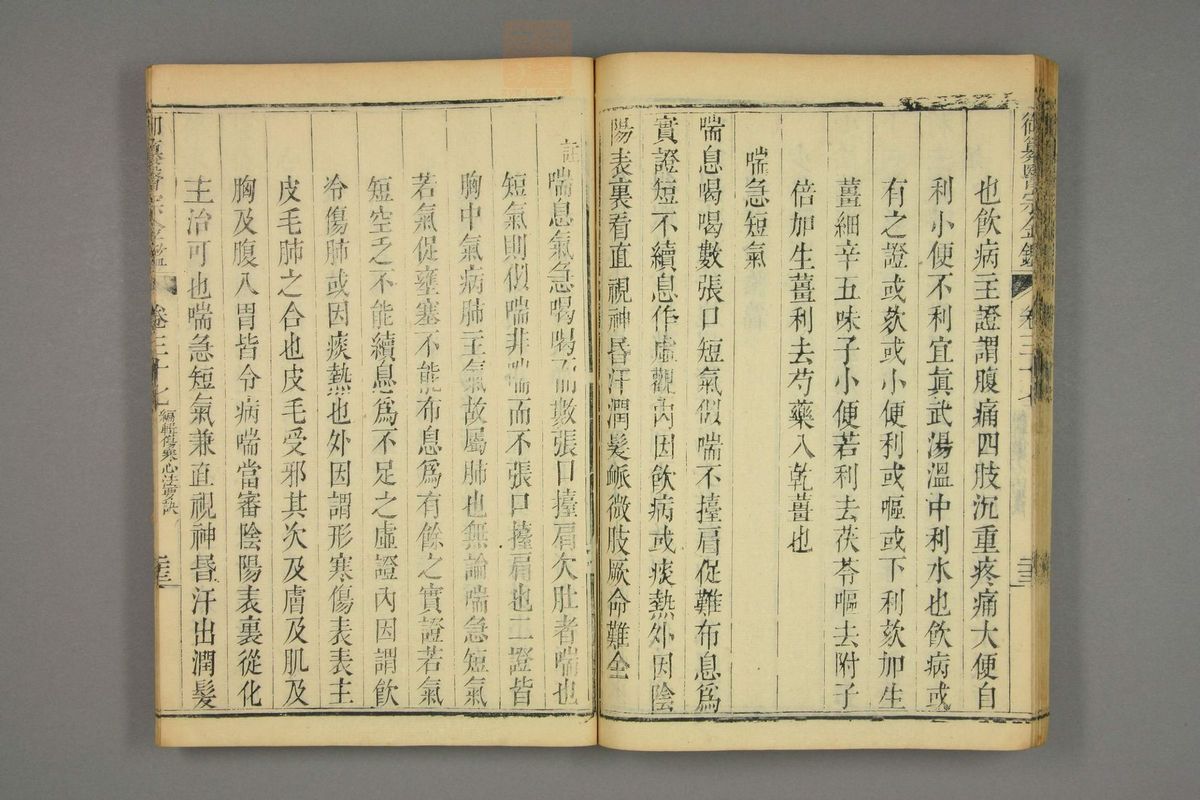 御纂醫宗金鑑 卷三十七
也飲病主證謂腹痛四肢沉重疼痛大便自
利小便不利宜眞武湯溫中利水也飲病或
有之證或欬或小便利或嘔或下利欬加生
薑細辛五味子小便若利去茯苓嘔去附子
倍加生薑利去芍藥入乾薑也
喘急短氣
喘息喝喝數張口短氣似喘不擡肩促難布息爲
實證短不續息作虛觀內因飲病或痰熱外因陰
陽表裏看直視神昏汗潤髮脈微肢厥命難全
註喘息氣急喝喝而數張口擡肩欠肚者喘也
短氣則似喘非喘而不張口擡肩也二證皆
胸中氣病肺主氣故屬肺也無論喘急短氣
若氣促壅塞不能布息爲有餘之實證若氣
短空乏不能續息爲不足之虛證內因謂飲
冷傷肺或因痰熱也外因謂形寒傷表表主
皮毛肺之合也皮毛受邪其次及膚及肌及
胸及腹入胃皆令病喘當審陰陽表裏從化
主治可也喘急短氣兼直視神昏汗出潤髮
御纂醫宗金鑑 卷三十七 編輯傷寒心法要訣